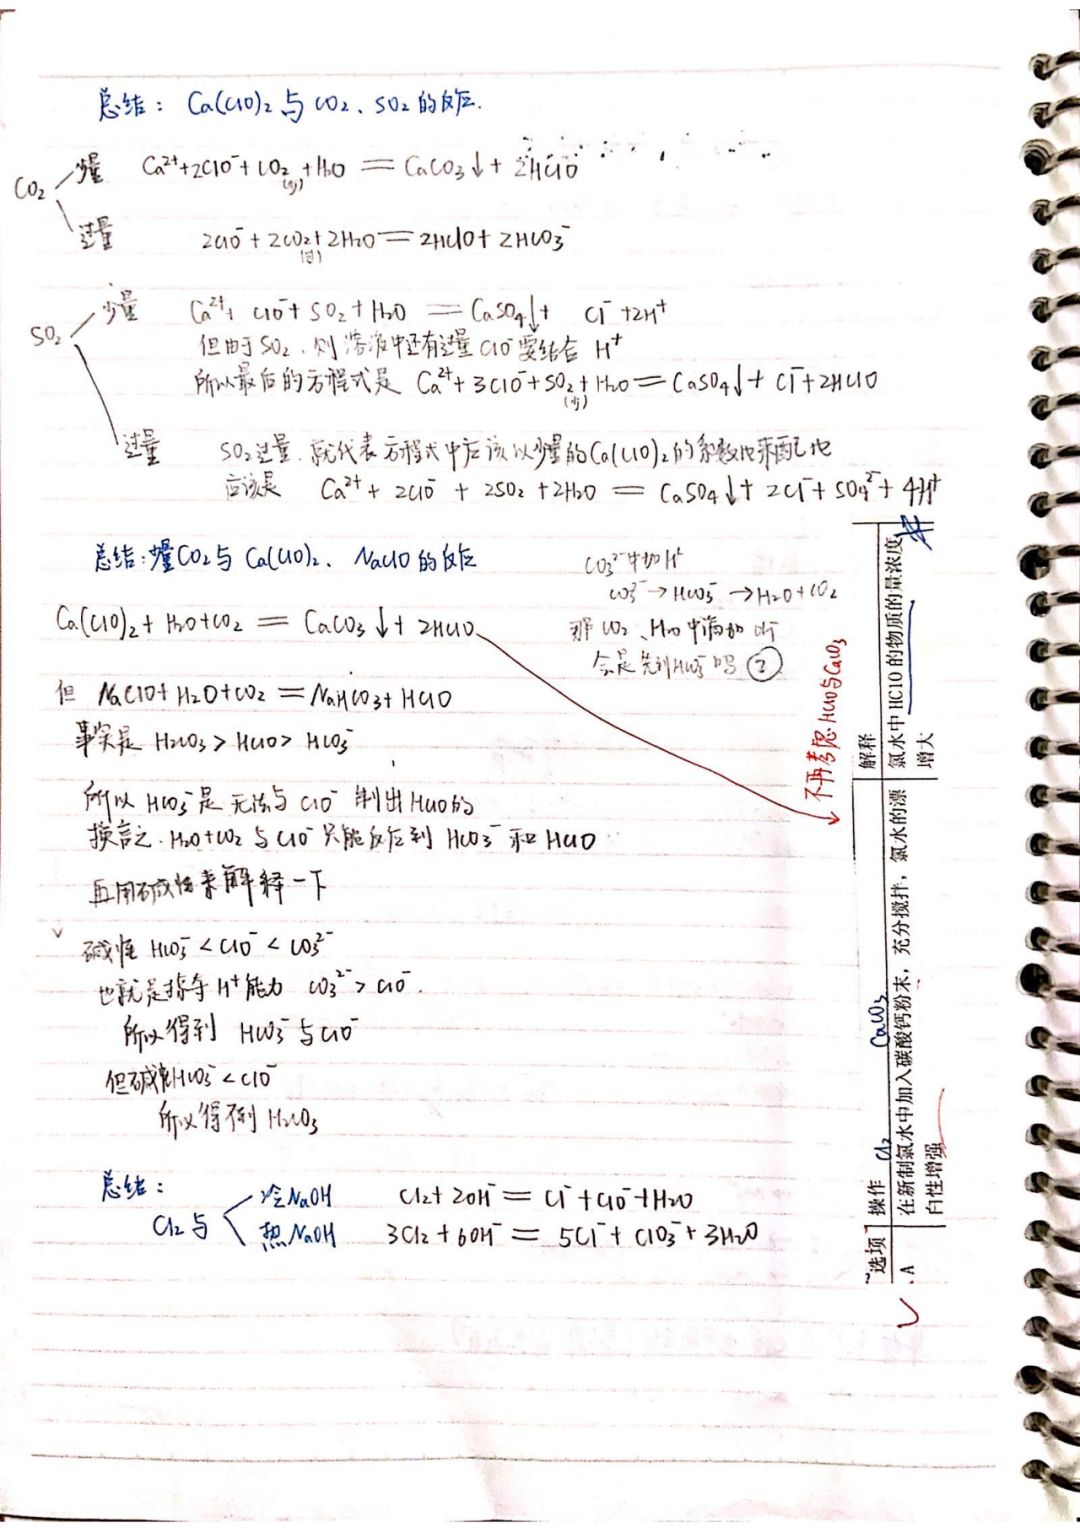 总结： Ca(ClO)2与CO2、SO2的反应.
CO2
少量 Ca²⁺+2ClO⁻+CO2(少)+H2O == CaCO3↓+ 2HClO
过量 2ClO⁻+2CO2(过)+2H2O == 2HClO+2HCO3⁻
SO2
少量 Ca²⁺+ ClO⁻+SO2+H2O == CaSO4↓+ Cl⁻+2H⁺
但由于SO2、则溶液中还有过量ClO⁻要结合 H⁺
所以最后的方程式是 Ca²⁺+3ClO⁻+SO2(少)+H2O == CaSO4↓+Cl⁻+2HClO
过量 SO2过量. 就代表方程式中应该以少量的Ca(ClO)2的系数比来配比
应该是 Ca²⁺+ 2ClO⁻ + 2SO2 +2H2O == CaSO4↓+2Cl⁻+SO4²⁻+4H⁺
总结:少量CO2与Ca(ClO)2、NaClO的反应
CO3²⁻中加H⁺
CO3²⁻→HCO3⁻→H2O+CO2
那CO2、H2O中滴加OH⁻
会是先到HCO3⁻吗？
Ca(ClO)2+H2O+CO2 == CaCO3↓+2HClO
不再考虑HClO与CaCO3
但 NaClO+H2O+CO2 == NaHCO3+HClO
事实是 H2CO3>HClO>HCO3⁻
所以HCO3⁻是无法与ClO⁻制出HClO的
换言之.H2O+CO2与ClO⁻只能反应到HCO3⁻和HClO
再用碱性来解释一下
碱性 HCO3⁻<ClO⁻<CO3²⁻
也就是掠夺H⁺能力 CO3²⁻>ClO⁻.
所以得到 HCO3⁻与ClO⁻
但碱性HCO3⁻<ClO⁻
所以得不到H2CO3
总结：
Cl2与
冷NaOH Cl2+2OH⁻ == Cl⁻+ClO⁻+H2O
热NaOH 3Cl2+6OH⁻ == 5Cl⁻+ClO3⁻+3H2O
选项 操作 解释
A 在新制氯水中加入碳酸钙粉末，充分搅拌，氯水的漂白性增强 氯水中HClO的物质的量浓度增大
Cl2 CaCO3